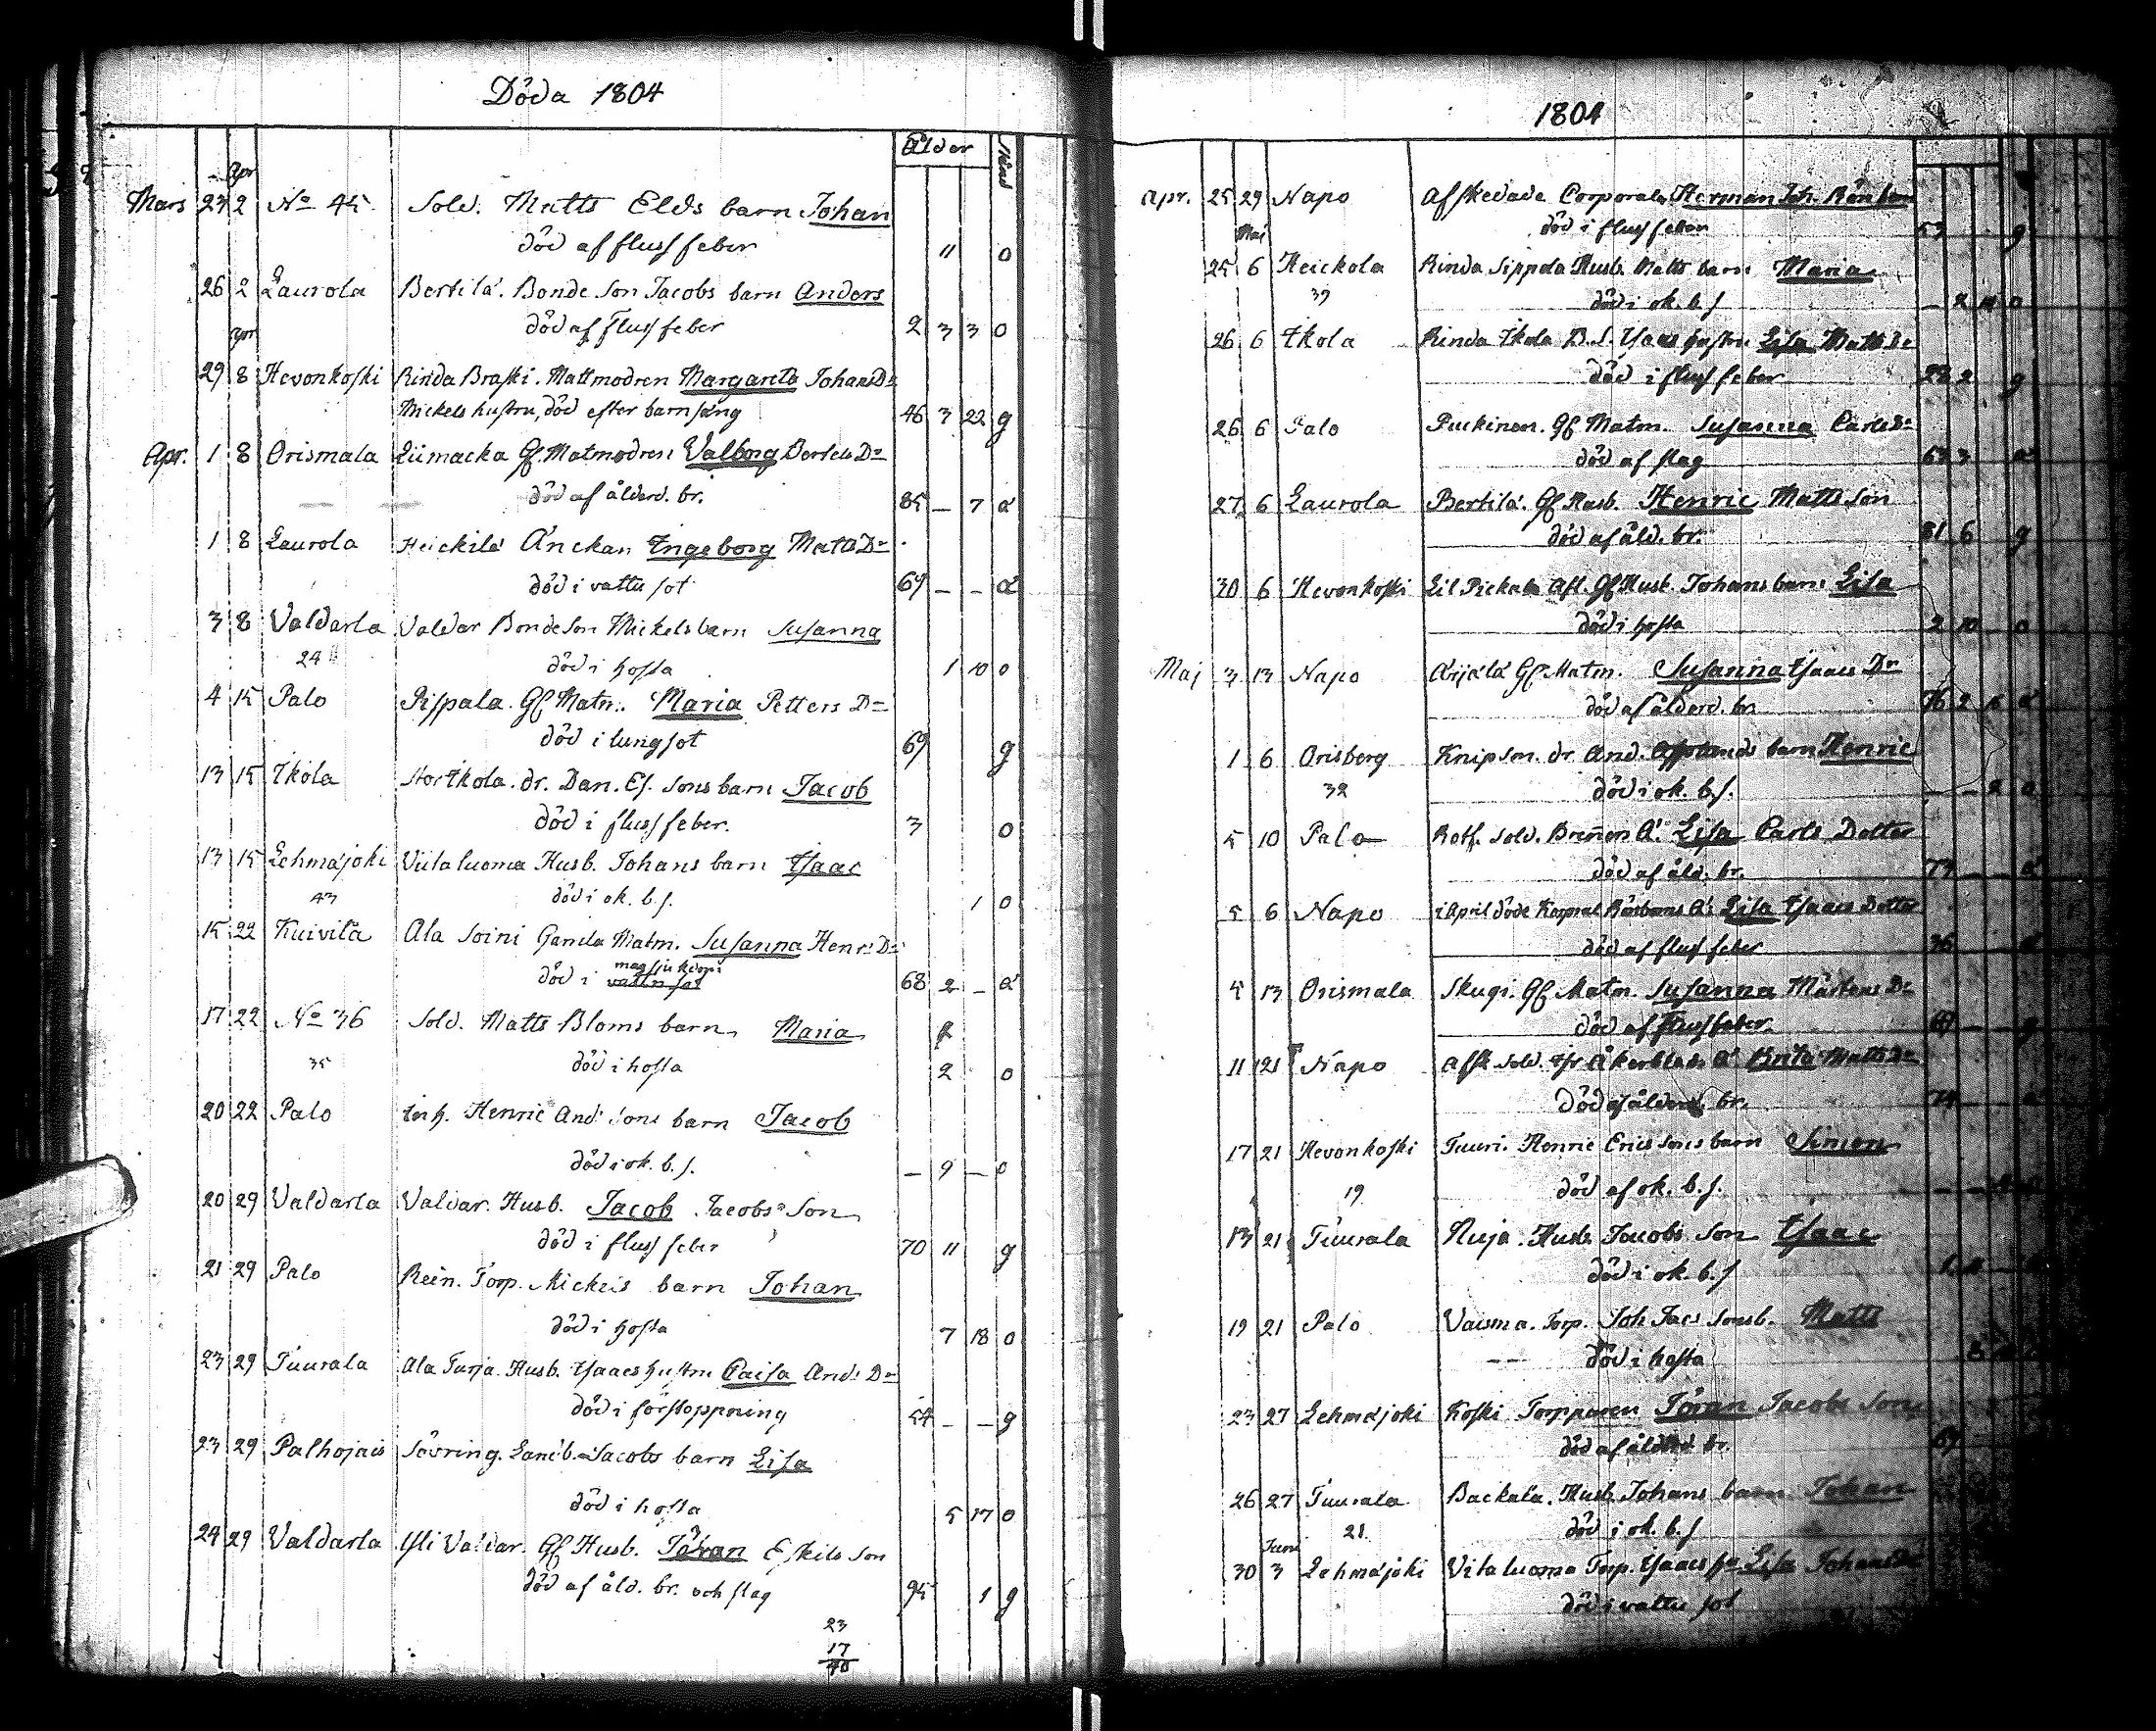 Döda 1804
Ålder Stånd
Apr
Mars 23 2 No 45 Sold. Matts Elds barn Johan
död af fluss feber 11 o
26 2 Laurola Bertilä. Bonde Son Jacobs barn Anders
död af fluss feber 2 3 3 o
Apr
29 8 Hevonkoski Rinda Braski. Mattmodren Margareta Johans Dr
Mickels hustru, död efter barnsäng 46 3 22 g
Apr. 1 8 Orismala Liimacka Gf. Matmodren Valborg Bertels Dr
död af ålderd. br. 85 — 7 ä
1 8 Laurola Heickilä Änckan Ingeborg Matts Dr
död i vattu sot 69 — — ä
3 8 Valdarla Valdar Bonde Son Mickels barn Susanna
24 död i hosta 1 10 o
4 15 Palo Pispala. Gf Matm. Maria Petters Dr
död i lungsot 69 g
13 15 Ikola Stor Ikola. dr. Dan. Es. sons barn Jacob
död i fluss feber. 3 o
13 15 Lehmäjoki Viitaluoma Husb. Johans barn Isaac
43 död i ok. b. s. 1 o
15 22 Kuivila Ala Soini Gamla Matm. Susanna Henr. Dr
död i vattu sot magsjukdom 68 2 — ä
17 22 No 36 Sold. Matts Bloms barn Maria
35 död i hosta 2 o
20 22 Palo inh. Henric And. Sons barn Jacob
död i ok. b. s. — 9 — o
20 29 Valdarla Valdar. Husb. Jacob Jacobs Son
död i fluss feber 70 11 g
21 29 Palo Rein. Torp. Mickels barn Johan
död i hosta 7 18 o
23 29 Tuurala Ala Turja. Husb. Isaacs hustru Caisa And. Dr
död i förstoppning 54 — — g
23 29 Palhojais Sövring. Jacobs barn Lisa
död i hosta 5 17 o
24 29 Valdarla Yli Valdar. Gf Husb. Jöran Eskils Son
död af åld. br. och slag 95 1 g
23
17
40
1804
Apr. 25 29 Napo Afskedade Corporalen Herman Joh.
död i fluss feber 53 g
Maj
25 6 Heickola Rinda Sippola Husb. Matts barn Maria
39 död i ok. b. s — 2 o
26 6 Ikola Rinda Ikola B. S. Isaacs hustru Lisa Matts Dr
död i fluss feber 28 2 g
26 6 Palo Puckinen. Gf Matm. Susanna Carls Dr
död af slag 63 3 ä
27 6 Laurola Bertilä. Gf Husb. Henric Matts Son
död af åld. br. 81 6 g
30 6 Hevonkoski Lil Pickala Gf Husb. Johans barn Lisa
död i hosta 2 10 o
Maj 3 13 Napo Äijälä Gf Matm. Susanna Isaacs Dr
död af ålderd. br. 76 2 ä
1 6 Orisberg Knipson. dr. And. barn Henric
32 död i ok. b. s. — — 2 o
5 10 Palo Rotf. Sold. Ä. Lisa Carls Dotter
död af åld. br. ä
5 6 Napo i April döde Korporal Ä. Lisa Isaacs Dotter
död af fluss feber 36 ä
5 13 Orismala Skugi. Gf Matm. Susanna Mårtens Dr
död af fluss feber. g
11 21 Napo Afsk Sold. Åkerblads Ä. Brita Matts Dr
död af ålderd. br.
17 21 Hevonkoski Tuuri. Henric Erics sons barn Simon
19 död af ok. b. s.
13 21 Tuurala Husb. Jacobs Son Isaac
död i ok. b. s
19 21 Palo Vaisma. Torp. Joh Jacs sons b. Matts
död i hosta
23 27 Lehmäjoki Koski Torpparen Jöran Jacobs Son
död af ålderd. br. 69
26 27 Tuurala Backala. Husb Johans barn Johan
21 död i ok. b. s
Juni
30 3 Lehmäjoki Vitaluoma Torp. Isaacs Lisa Johans Dr
död i vattu sot